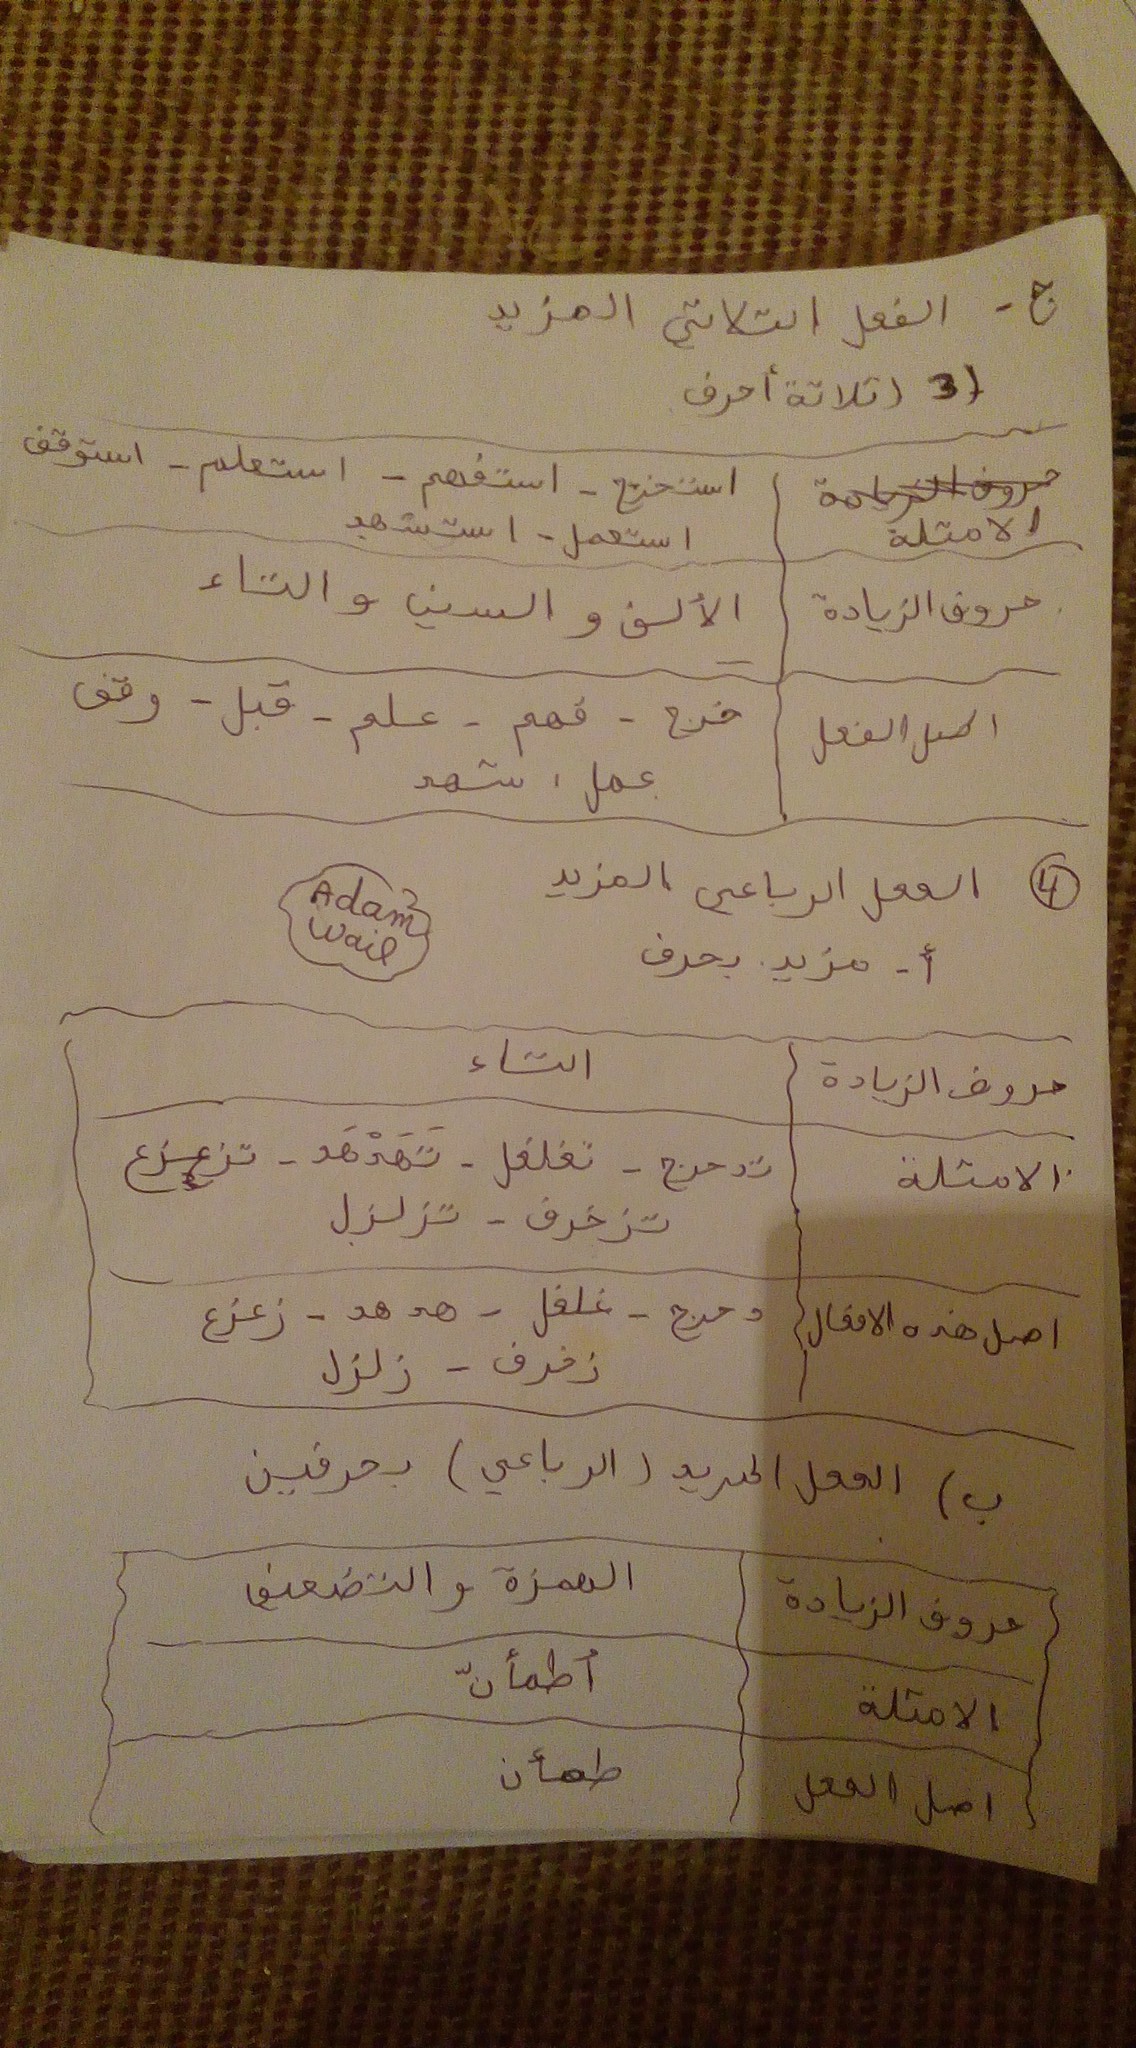 ج - الفعل الثلاثي المزيد
3) (ثلاثة أحرف
حروف الزيادة
الامثلة
استخرج - استفهم - استعلم - استوقف
استعمل - استشهد
حروف الزيادة
الألف و السين و التاء
اصل الفعل
خرج - فهم - علم - قبل - وقف
عمل ، شهد
4 الفعل الرباعي المزيد
Adam
Wail
أ - مزيد بحرف
حروف الزيادة
التاء
الامثلة
تدحرج - تغلغل - تَهَدْهَد - تزعزع
تزخرف - تزلزل
اصل هذه الافعال
دحرج - غلغل - هدهد - زعزع
زخرف - زلزل
ب) الفعل المزيد (الرباعي) بحرفين
حروف الزيادة
الهمزة و التضعيف
الامثلة
أطمأنّ
اصل الفعل
طمأن